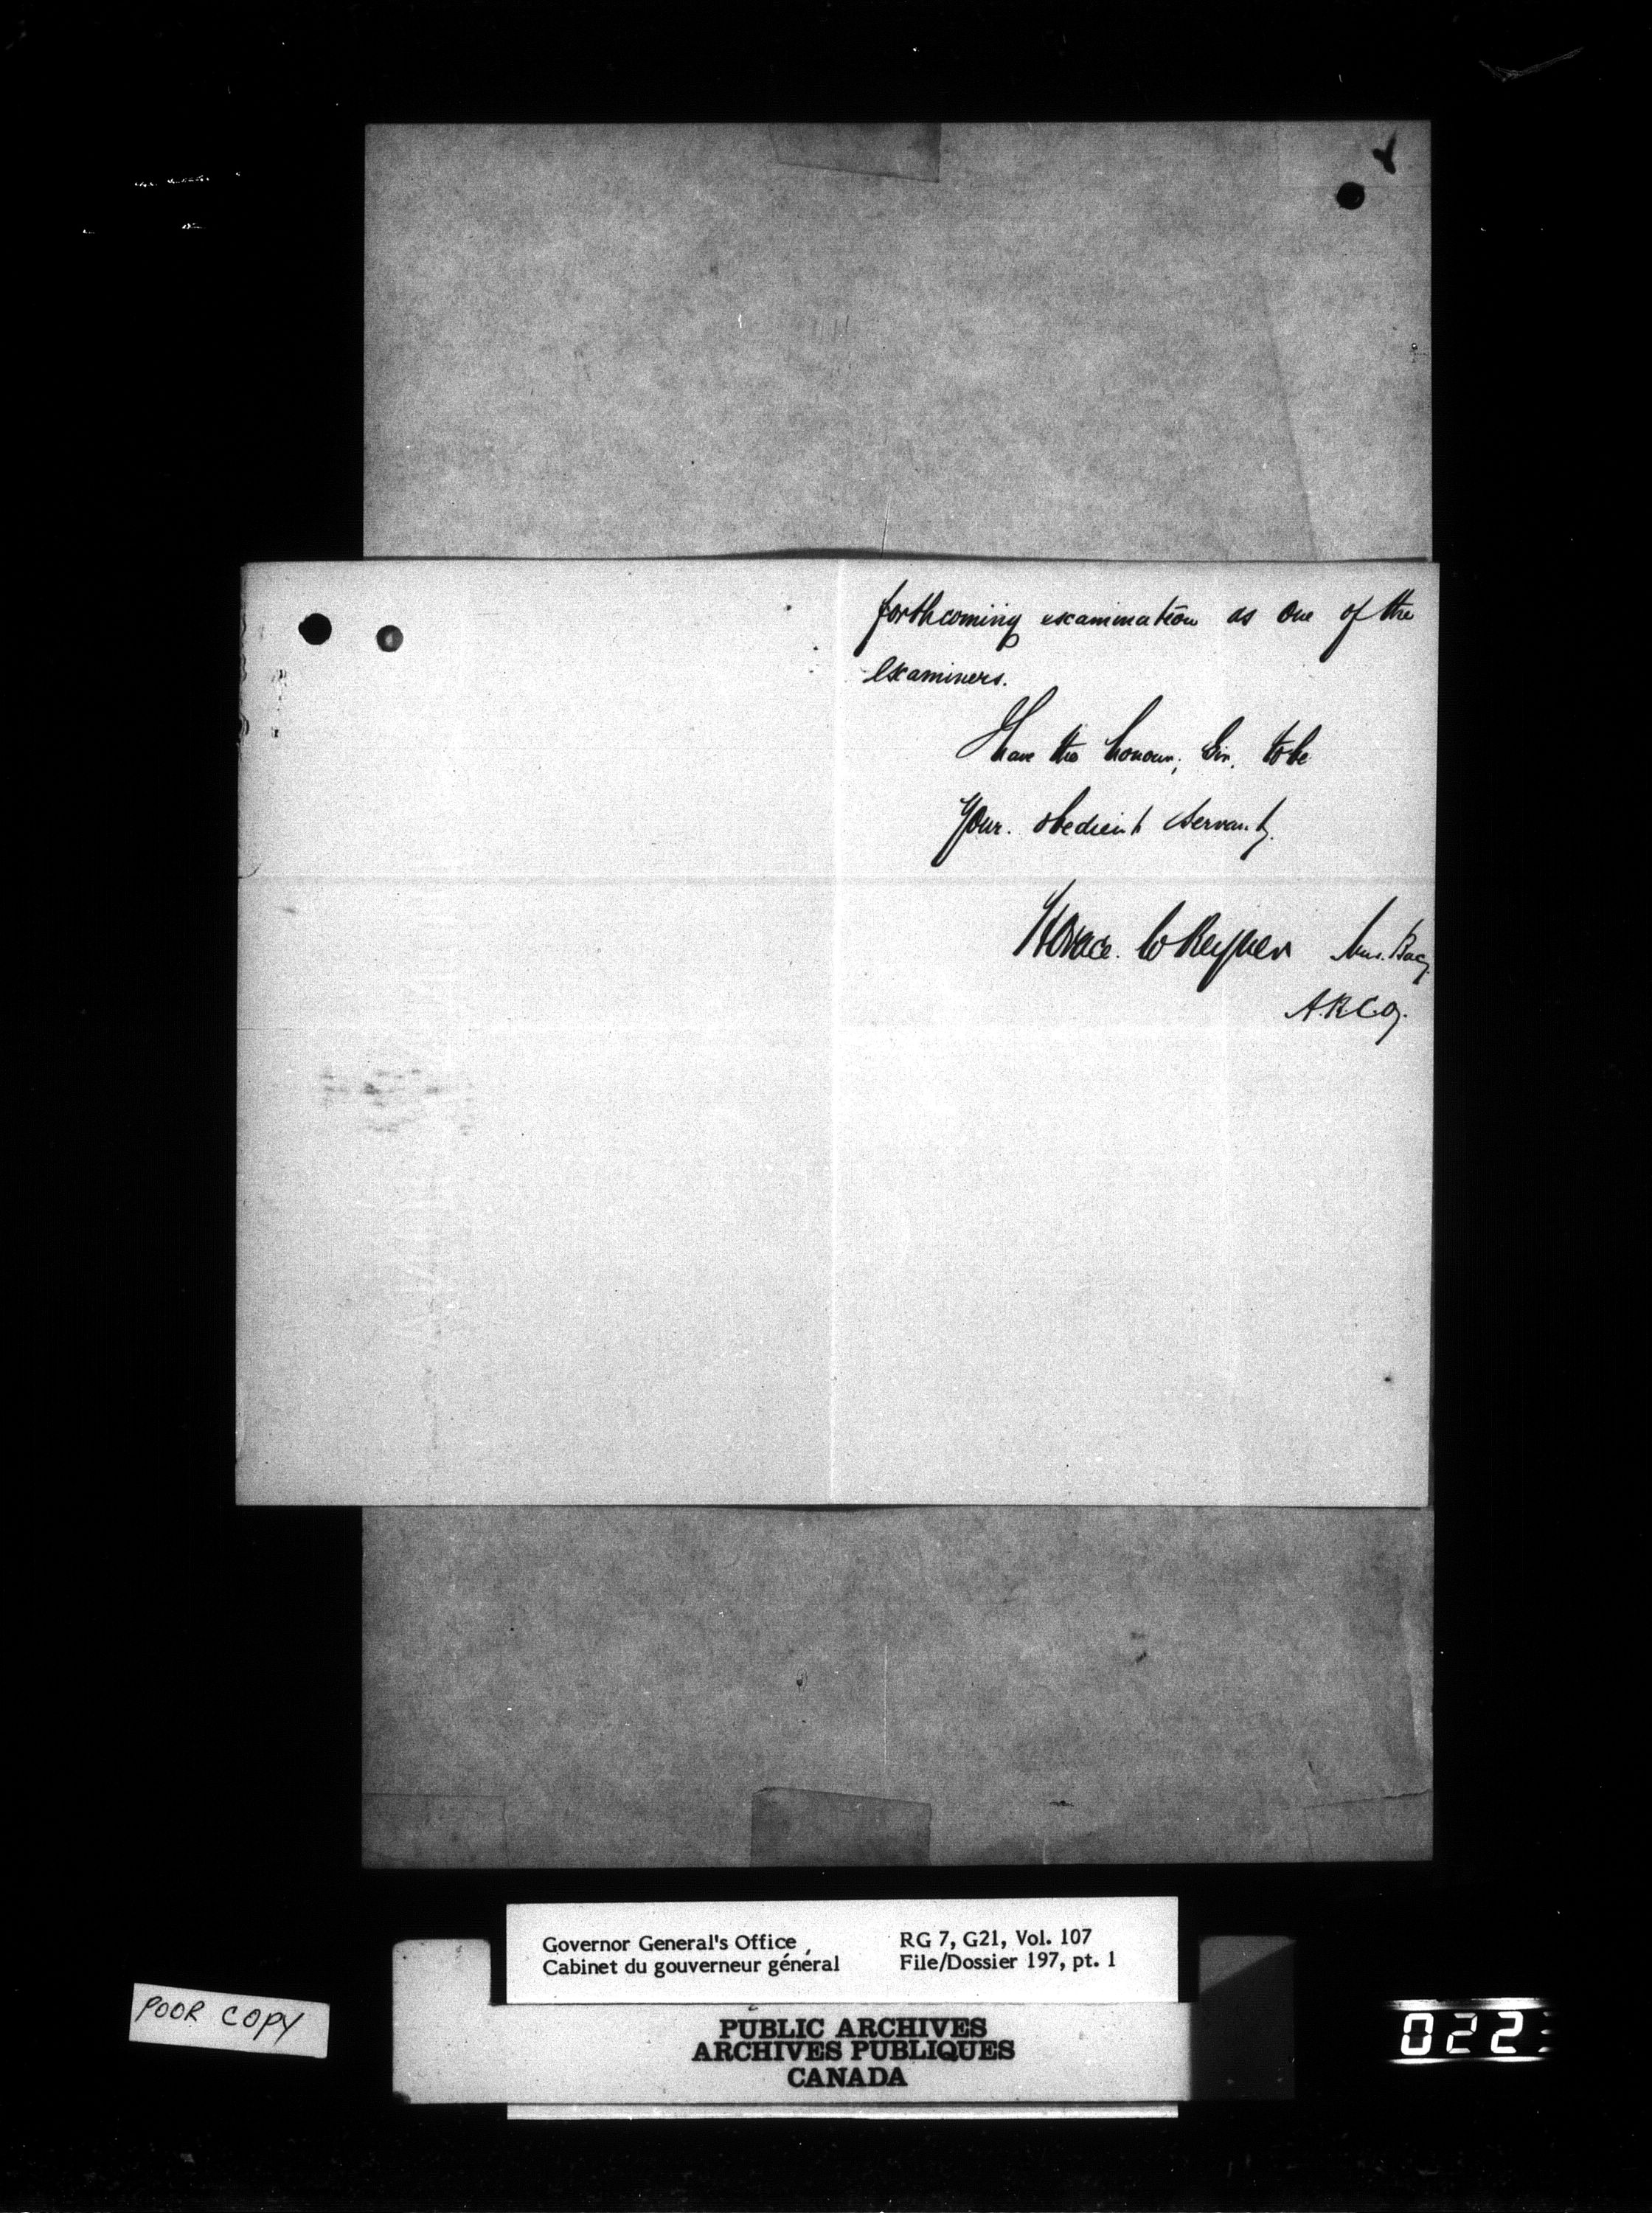 forthcoming examination as one of the
examiners.
I have the honour, Sir, to be
Your obedient Servant,
Horace W Reyner Mus. Bac,
A.R.C.O.
Governor General's Office
Cabinet du gouverneur général
RG 7, G21, Vol. 107
File/Dossier 197, pt. 1
POOR COPY
PUBLIC ARCHIVES
ARCHIVES PUBLIQUES
CANADA
022